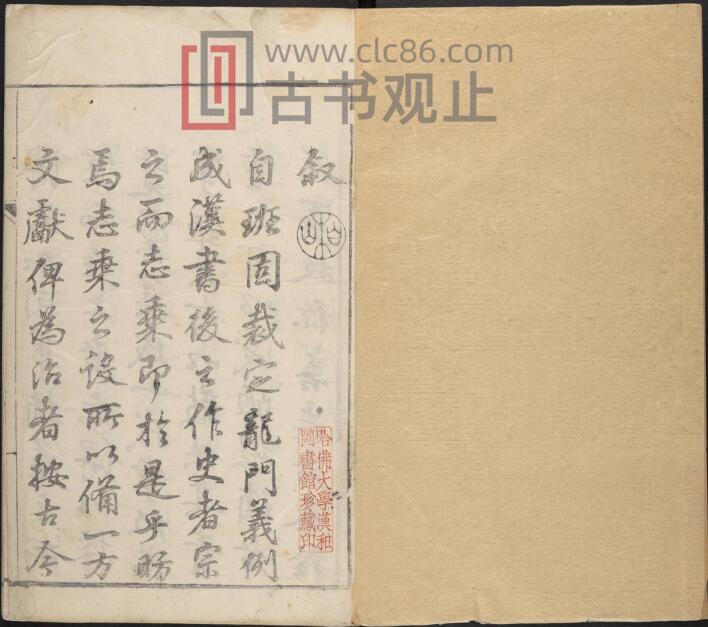 www.clc86.com
古书观止
敘
自班固裁定龍門義例
成漢書後之作史者宗
之而志乘即於是乎昉
焉志乘之設所以備一方
文獻俾為治者按古今
哈佛大學漢和
圖書館珍藏印